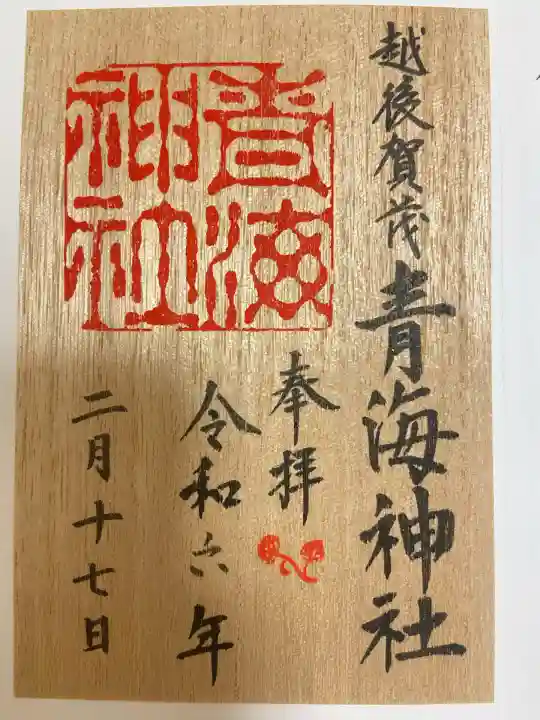 越後賀茂青海神社
奉拝
令和六年
二月十七日
青海
神社